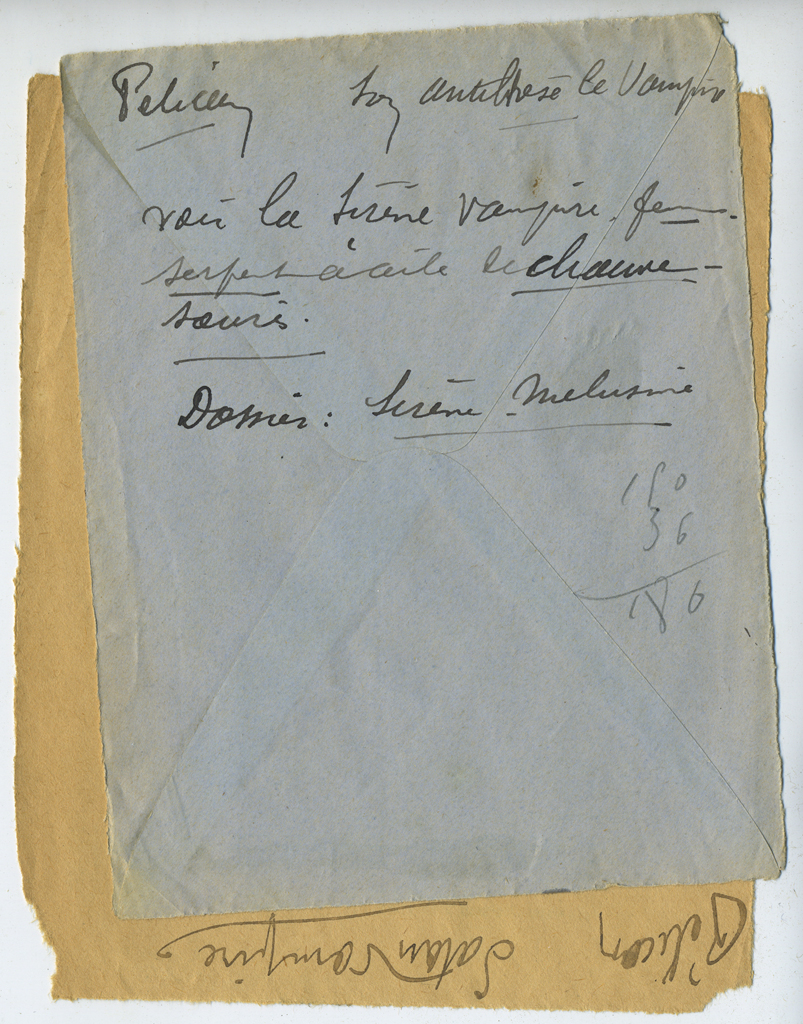 Pelican son antithèse le Vampire
voir la Sirène vampire. fem-
serpent à aile de chauve-
souris.
Dossier: Sirène-Melusine
150
36
186
Pélican Satan Vampire